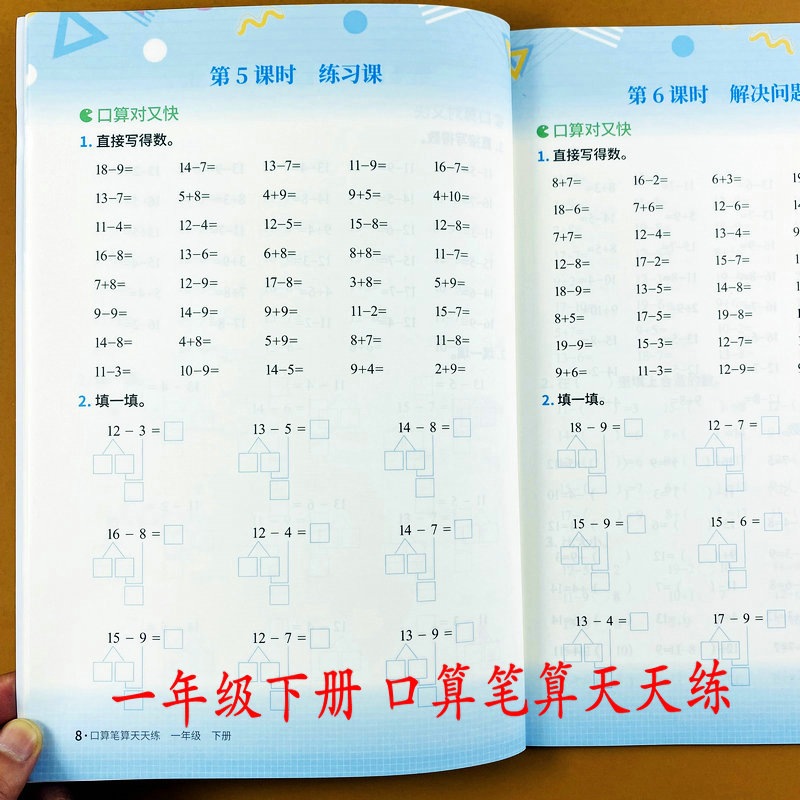 第5课时 练习课
口算对又快
1. 直接写得数。
18−9= 14−7= 13−7= 11−9= 16−7=
13−7= 5+8= 4+9= 9+5= 4+10=
11−4= 12−4= 12−5= 15−8= 12−8=
16−8= 13−6= 6+8= 8+8= 11−7=
7+8= 12−9= 17−8= 3+8= 5+9=
9−9= 14−9= 9+9= 11−2= 15−7=
14−8= 4+8= 5+9= 8+7= 11−8=
11−3= 10−9= 14−5= 9+4= 2+9=
2. 填一填。
12 − 3 = 13 − 5 = 14 − 8 =
16 − 8 = 12 − 4 = 14 − 7 =
15 − 9 = 12 − 7 = 13 − 9 =
8·口算笔算天天练 一年级 下册
第6课时 解决问题
口算对又快
1. 直接写得数。
8+7= 16−2= 6+3=
18−6= 7+6= 12−6=
7+7= 12−4= 13−4=
12−8= 17−2= 15−7=
18−9= 13−5= 14−8=
8+5= 17−5= 19−8=
19−9= 15−3= 12−7=
9+6= 11−3= 12−9=
2. 填一填。
18 − 9 = 12 − 7 =
15 − 9 = 15 − 6 =
13 − 4 = 17 − 9 =
一年级下册 口算笔算天天练